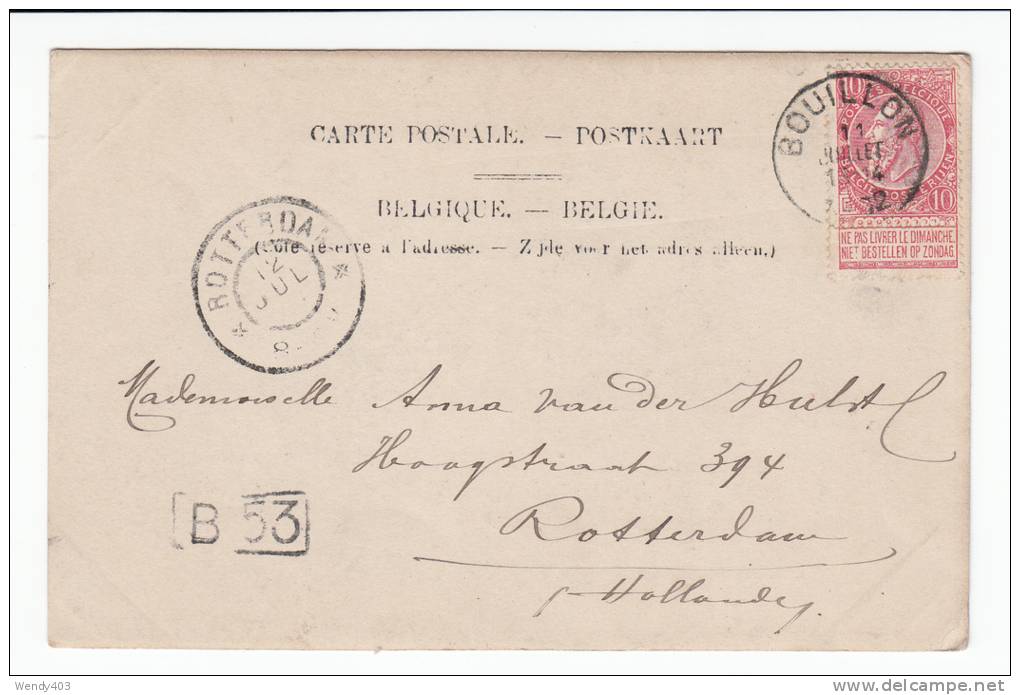 CARTE POSTALE. — POSTKAART
BELGIQUE. — BELGIE.
(Côté réservé à l'adresse. — Zijde voor het adres alleen.)
BOUILLON
11
JUILLET
10
BELGIQUE
10
NE PAS LIVRER LE DIMANCHE
NIET BESTELLEN OP ZONDAG.
ROTTERDAM
12
JUL
Mademoiselle Anna van der Hulst
Hoogstraat 394
Rotterdam
Hollande
B 53
Wendy403
delcampe.net